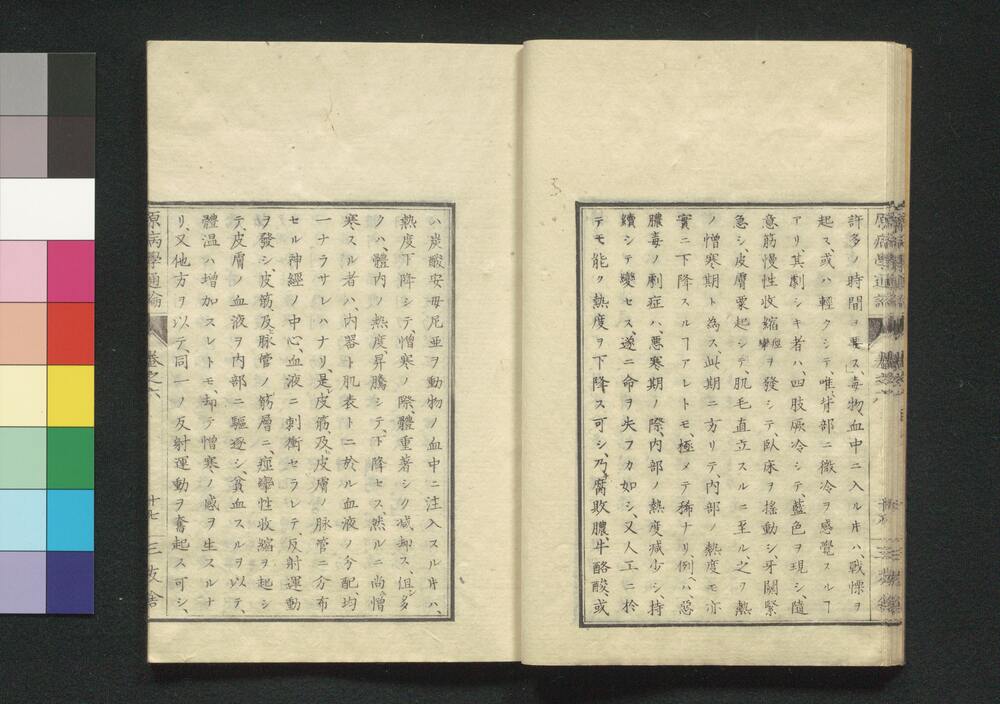 許多ノ時間ヲ要ス、毒物、血中ニ入ル片ハ、戦慄ヲ
起ス、或ハ輕クシテ、唯背部ニ微冷ヲ感覺スルヿ
アリ、其劇シキ者ハ、四肢厥冷シテ、藍色ヲ現シ、隨
意筋慢性收縮痙攣ヲ發シテ、臥床ヲ搖動シ、牙關緊
急シ、皮膚粟起シテ、肌毛直立スルニ至ル、之ヲ熱
ノ憎寒期ト為ス、此期ニ方リテ、内部ノ熱度モ亦
實ニ下降スルヿアレトモ、極メテ稀ナリ、例ヘハ、惡
膿毒ノ劇症ハ、悪寒期ノ際、内部ノ熱度減少シ、持
續シテ變セス、遂ニ命ヲ失フカ如シ、又人工ニ於
テモ能ク熱度ヲ下降ス可シ、乃腐敗膿、牛酪酸、或
ハ炭酸安母尼亜ヲ動物ノ血中ニ注入スル片ハ、
熱度下降シテ、憎寒ノ際、體重著シク減却ス、但シ多
クハ、體内ノ熱度、昇騰シテ、下降セス、然ルニ尚憎
寒スル者ハ、内器ト肌表トニ於ル血液ノ分配、均
一ナラサレハナリ、是レ皮筋、及皮膚ノ脉管ニ分布
セル神經ノ中心、血液ニ刺衝セラレテ反射運動
ヲ發シ、皮筋、及ヒ脉管ノ筋層ニ、痙攣性收縮ヲ起シ
テ、皮膚ノ血液ヲ内部ニ驅逐シ、貧血スルヲ以テ、
體温ハ増加スレトモ、却テ憎寒ノ感ヲ生スルナ
リ、又他方ヲ以テ、同一ノ反射運動ヲ奮起ス可シ、
原病學通論 巻之六 十七 三友舎